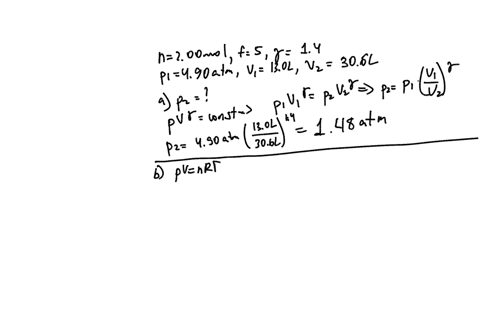 n=2.00mol, f=5, γ=1.4
p₁=4.90atm, V₁=13.0L, V₂=30.6L
a) p₂=?
pV^γ=const=> p₁V₁^γ=p₂V₂^γ=> p₂=p₁·(V₁/V₂)^γ
p₂=4.90atm(13.0L/30.6L)^1.4=1.48atm
b) pV=nRT